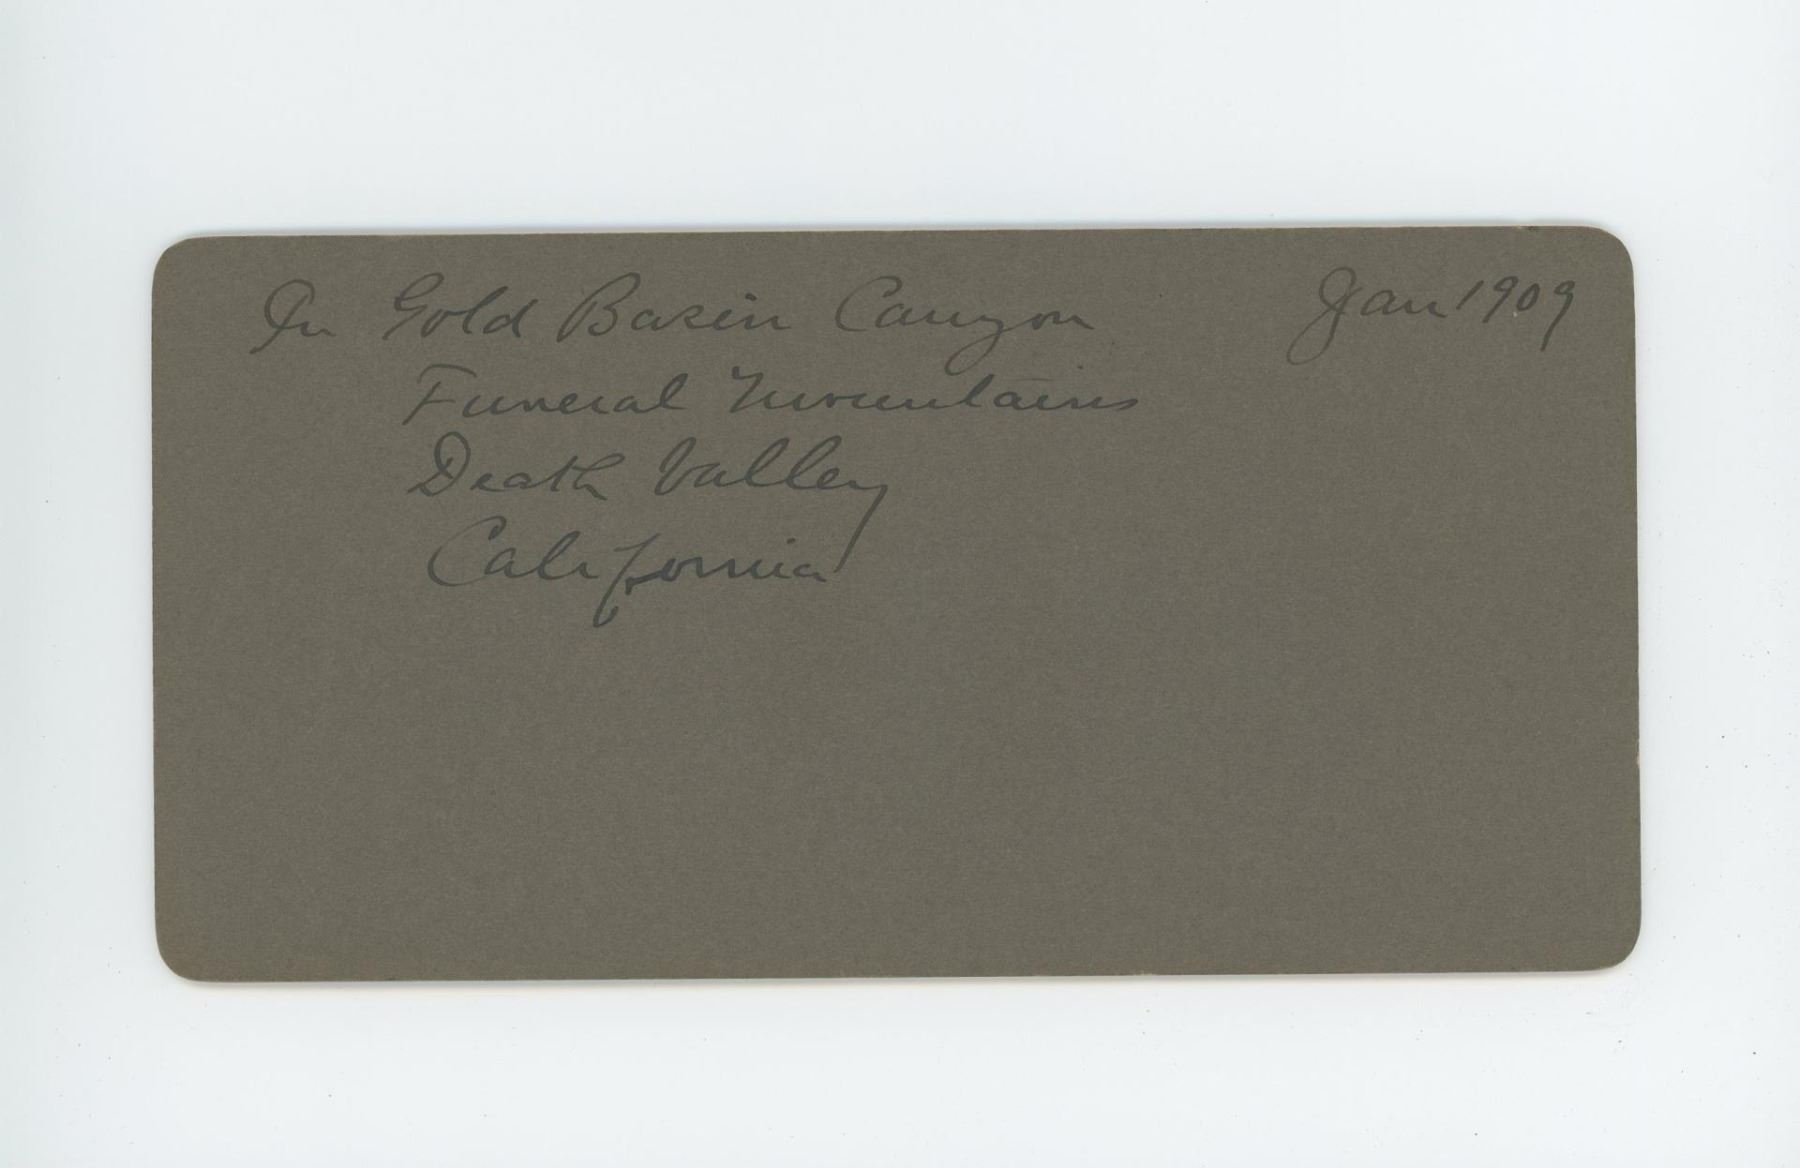 In Gold Basin Canyon Jan 1909
Funeral Mountains
Death Valley
California